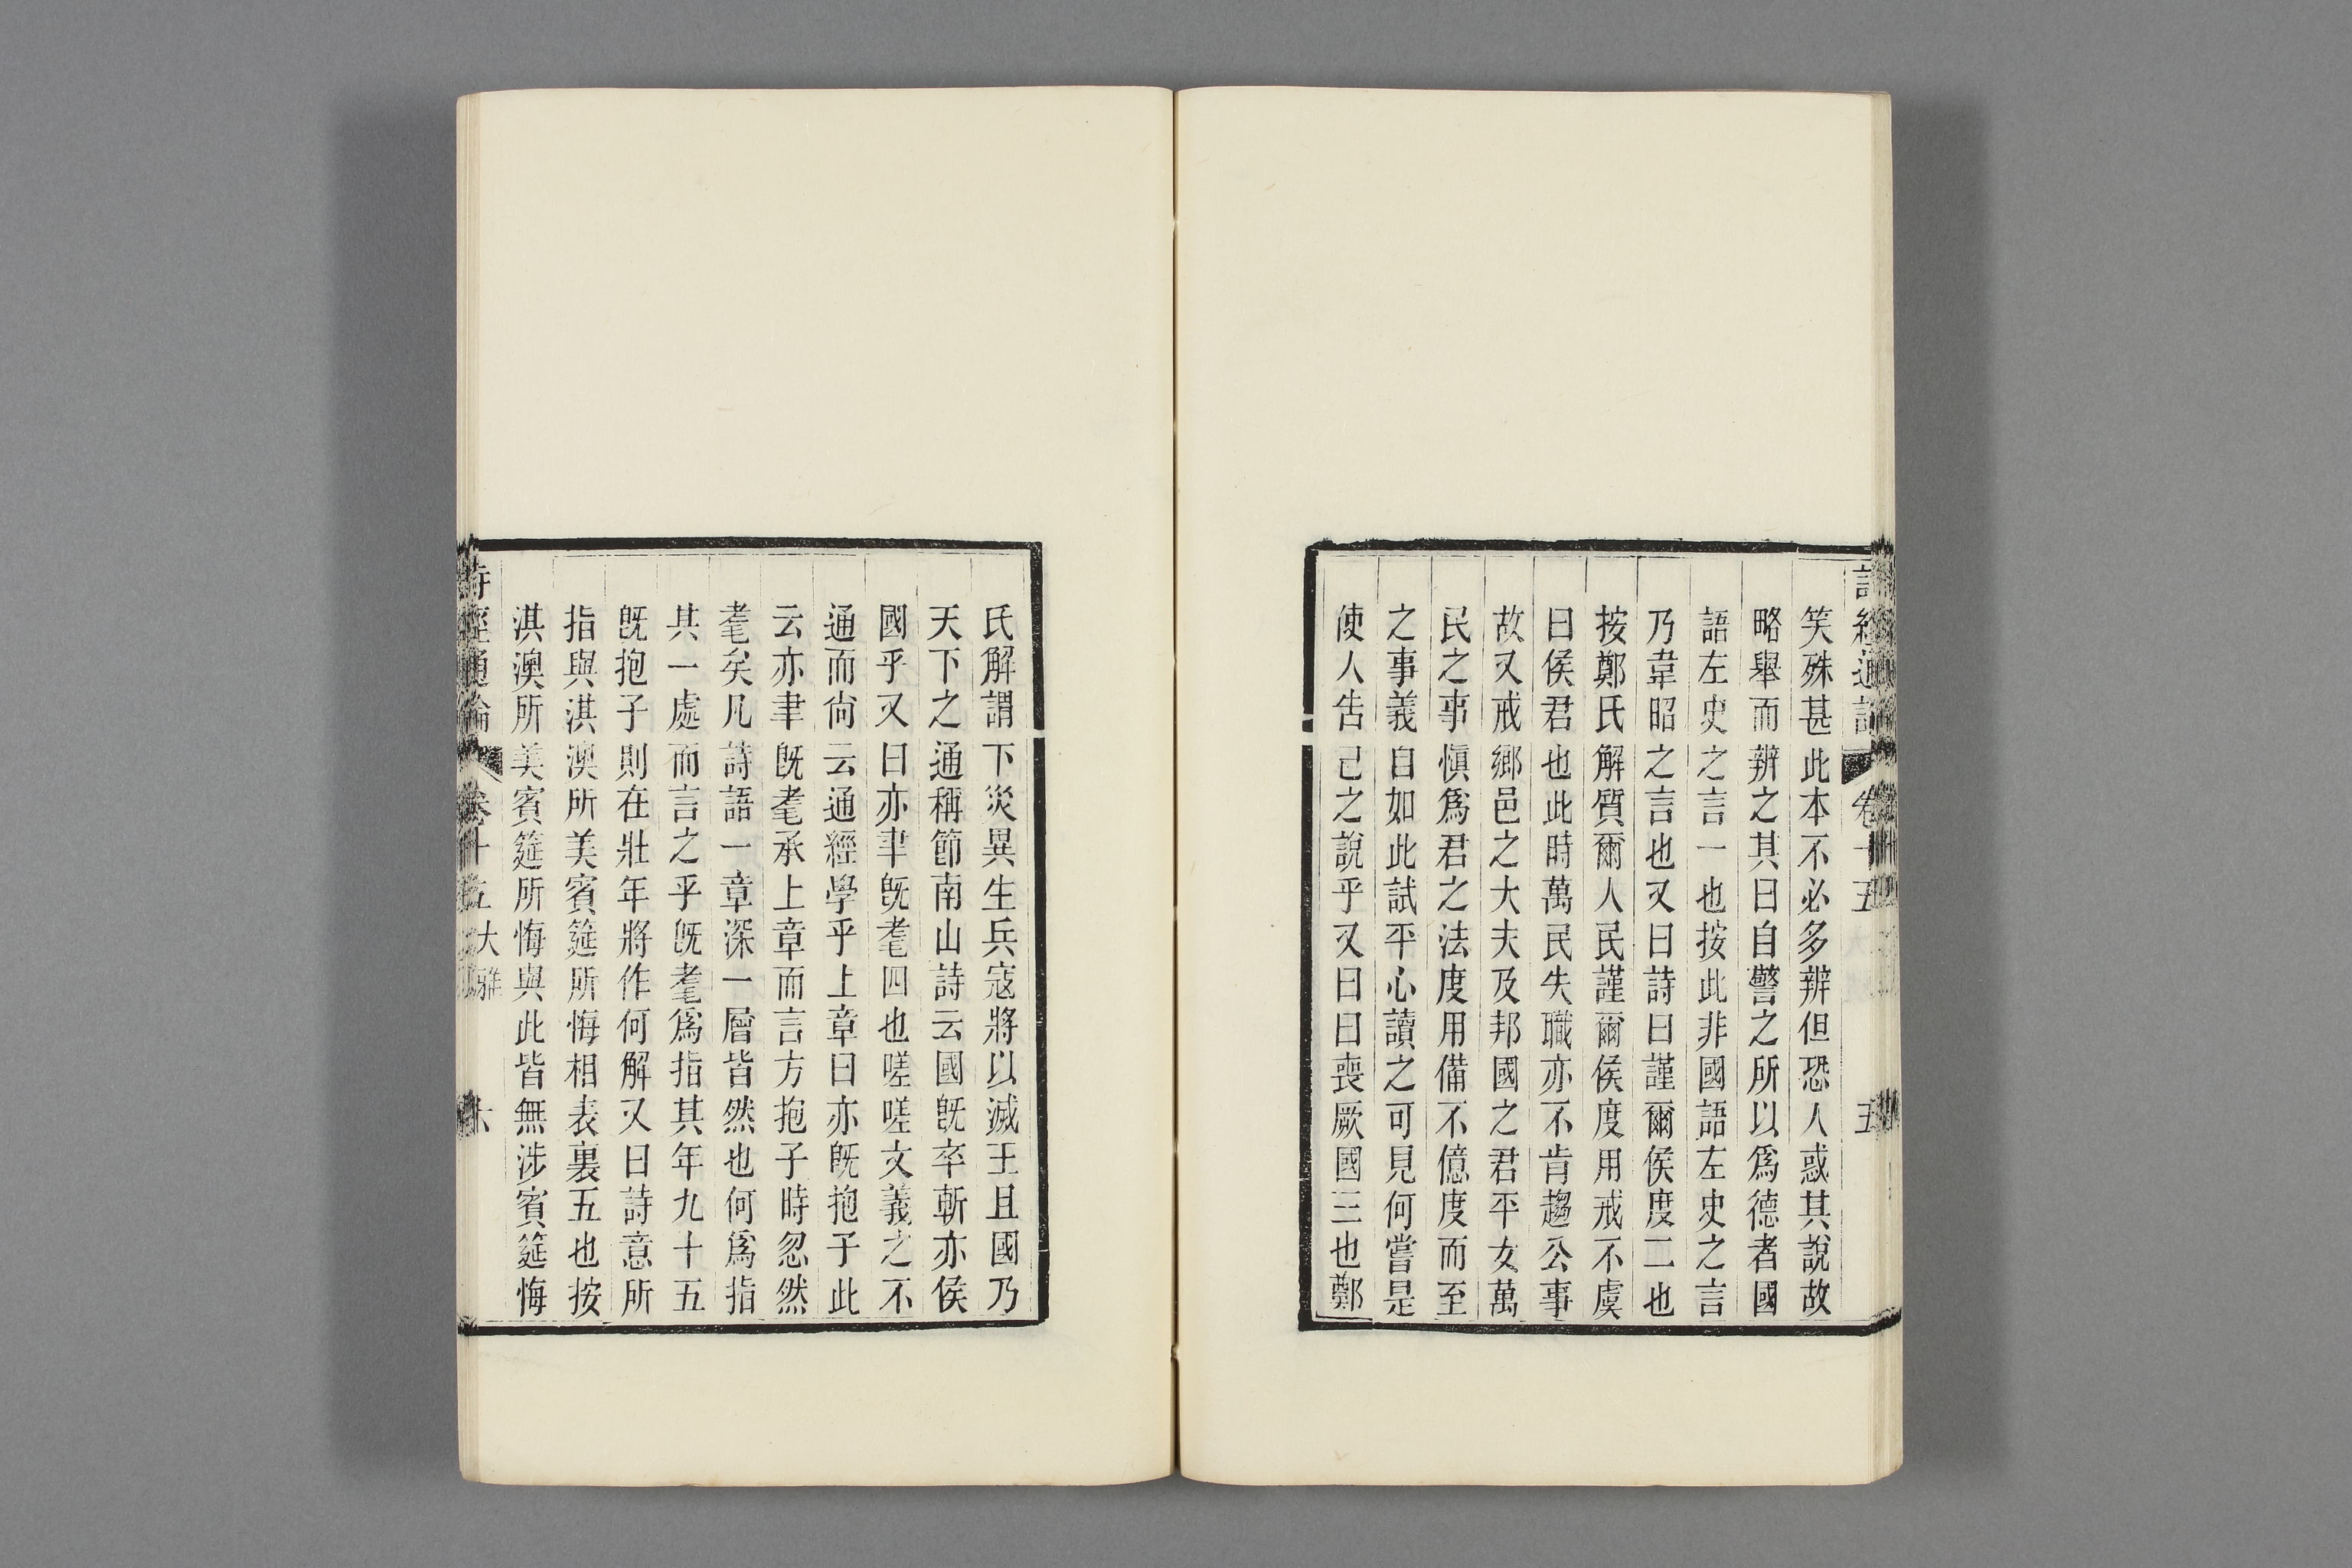 笑殊甚此本不必多辨但恐人惑其說故
略舉而辨之其曰自警之所以爲德者國
語左史之言一也按此非國語左史之言
乃韋昭之言也又曰詩曰謹爾侯度二也
按鄭氏解質爾人民謹爾侯度用戒不虞
曰侯君也此時萬民失職亦不肯趨公事
故又戒鄉邑之大夫及邦國之君平女萬
民之事愼爲君之法度用備不億度而至
之事義自如此試平心讀之可見何嘗是
使人告己之說乎又曰曰喪厥國三也鄭
氏解謂下災異生兵寇將以滅王且國乃
天下之通稱節南山詩云國旣卒斬亦侯
國乎又曰亦聿旣耄四也嗟嗟文義之不
通而尙云通經學乎上章曰亦旣抱子此
云亦聿旣耄承上章而言方抱子時忽然
耄矣凡詩語一章深一層皆然也何爲指
其一處而言之乎旣耄爲指其年九十五
旣抱子則在壯年將作何解又曰詩意所
指與淇澳所美賓筵所悔相表裏五也按
淇澳所美賓筵所悔與此皆無涉賓筵悔
詩經通論 卷十五 大雅 六